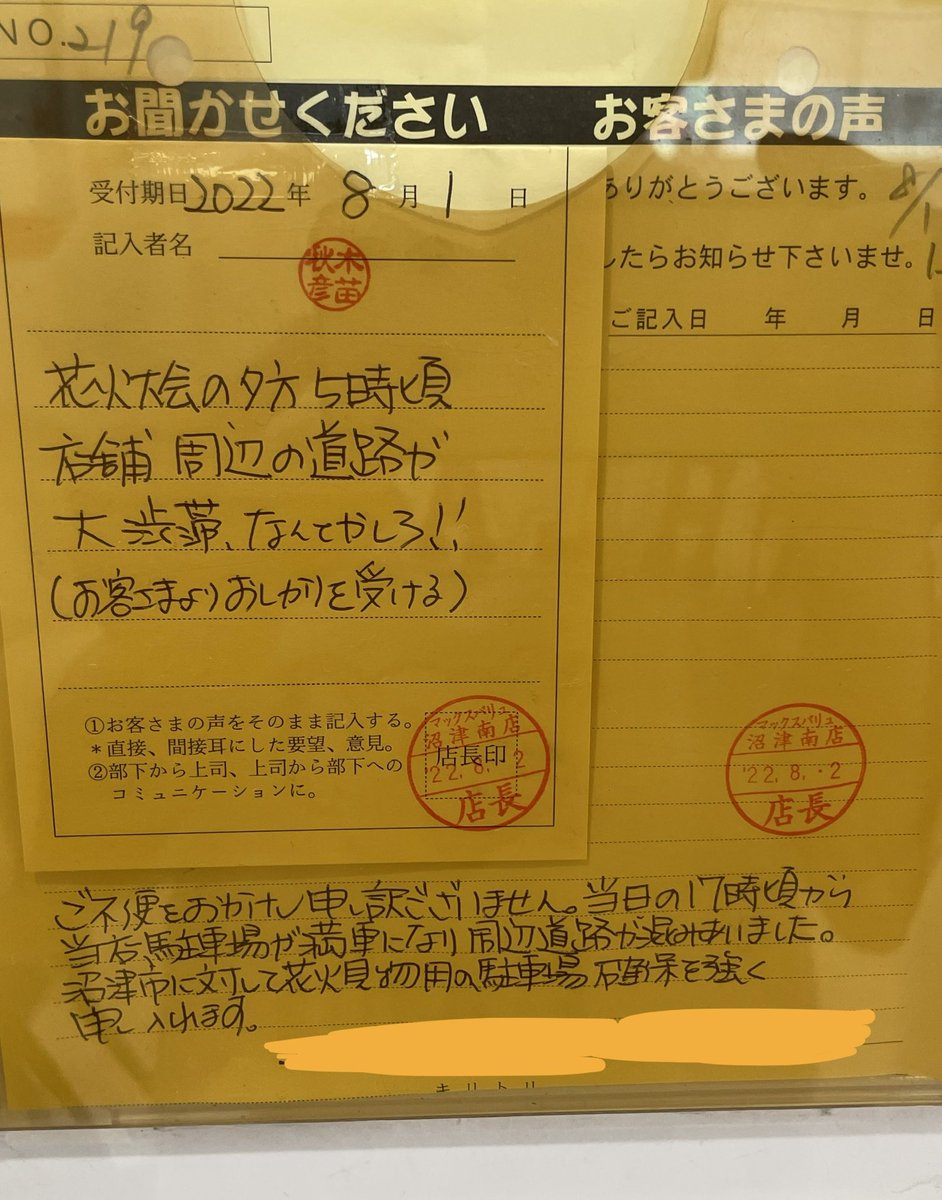 NO.219
お聞かせください
お客さまの声
受付期日2022年 8月 1日
記入者名
花火大会の夕方5時頃
店舗周辺の道路が
大渋滞、なんてかしろ!!
(お客さまよりおしかりを受ける)
①お客さまの声をそのまま記入する。
*直接、間接耳にした要望、意見。
②部下から上司、上司から部下への
コミュニケーションに。
マックスバリュ
沼津南店
店長印
'22.8.-2
店長
ありがとうございます。
8/1
したらお知らせ下さいませ。
ご記入日 年 月 日
マックスバリュ
沼津南店
'22.8.-2
店長
ご不便をおかけし申し訳ございません。当日の17時頃から
当店駐車場が満車になり周辺道路が混みあいました。
沼津市に対して花火見物用の駐車場確保を強く
申し入れます。
キリトリ